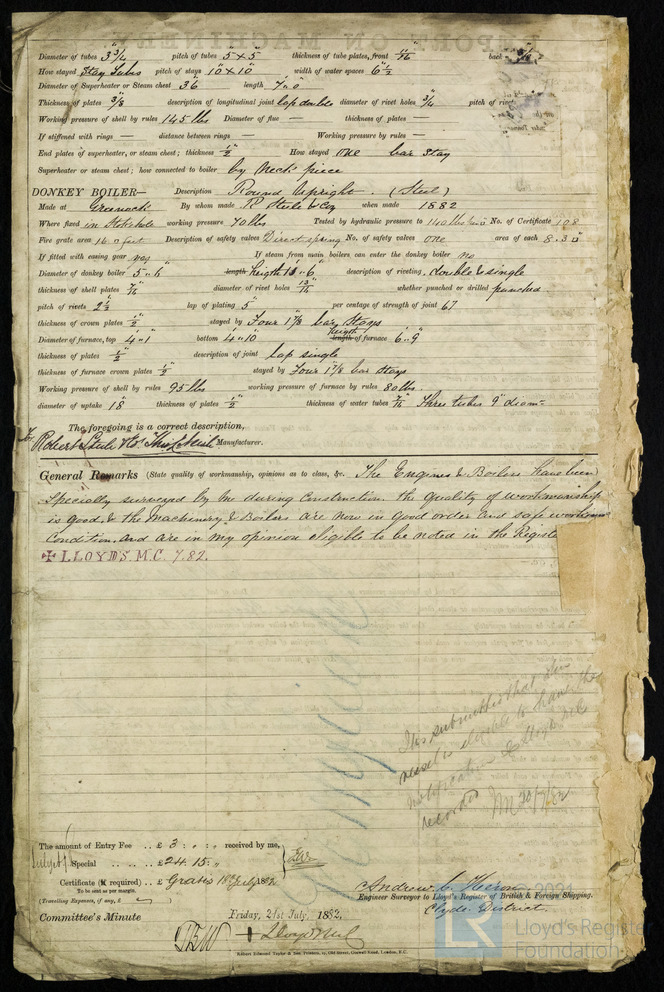 Diameter of tubes 3 3/4" pitch of tubes 5" x 5" thickness of tube plates, front back
How stayed Stay tubes pitch of stays 10" x 10" width of water spaces 6 1/2"
Diameter of Superheater or Steam chest 3' 6" length 7' 0"
Thickness of plates 3/8 description of longitudinal joint lap double diameter of rivet holes 3/4" pitch of rivets
Working pressure of shell by rules 145 lbs Diameter of flue — thickness of plates —
If stiffened with rings — distance between rings — Working pressure by rules —
End plates of superheater, or steam chest; thickness 1/2" How stayed one bar stay
Superheater or steam chest; how connected to boiler by neck piece
DONKEY BOILER— Description Round Upright. (Steel)
Made at Greenock By whom made R Steele & Co when made 1882
Where fixed in Stokehole working pressure 70 lbs Tested by hydraulic pressure to 140 lbs No. of Certificate 108
Fire grate area 16.0 feet Description of safety valves Direct spring No. of safety valves one area of each 8.3
If fitted with easing gear yes If steam from main boilers can enter the donkey boiler no
Diameter of donkey boiler 5' 6" length height description of riveting, double & single
thickness of shell plates 7/16" diameter of rivet holes 13/16" whether punched or drilled punched
pitch of rivets 2 1/2" lap of plating 5" per centage of strength of joint 67
thickness of crown plates 1/2" stayed by Four 1 7/8 bar Stays
Diameter of furnace, top 4' 1" bottom 4' 10 length height of furnace 6' 9"
thickness of plates 1/2" description of joint lap single
thickness of furnace crown plates 1/2" stayed by Four 1 7/8 bar stays
Working pressure of shell by rules 95 lbs working pressure of furnace by rules 80 lbs.
diameter of uptake 18" thickness of plates 1/2" thickness of water tubes 7/16" Three tubes 9" diam=
The foregoing is a correct description,
For Robert Steele & Co Manufacturer.
General Remarks (State quality of workmanship, opinions as to class, &c. The Engines & Boilers have been
specially surveyed by me during construction. the quality of workmanship
is good, & the Machinery & Boilers are now in good order and safe working
Condition. and are in my opinion eligible to be noted in the Register
✠ LLOYD'S M.C. 7.82.
It is submitted that this
vessel is eligible to have the
notification ✠ Lloyds M.C.
recorded
The amount of Entry Fee .. £ 3 : : received by me,
Special .. £ 24 . 15 :
Certificate (if required) .. £ Gratis 18th July 1882
To be sent as per margin.
(Travelling Expenses, if any, £
Andrew C. Heron
Engineer Surveyor to Lloyd's Register of British & Foreign Shipping.
Clyde District.
Committee's Minute Friday, 21st July, 1882.
✠ Lloyds M.C.
Robert Edmund Taylor & Son, Printers, 19, Old Street, Goswell Road, London, E.C.
2021
LR
Lloyd's Register
Foundation